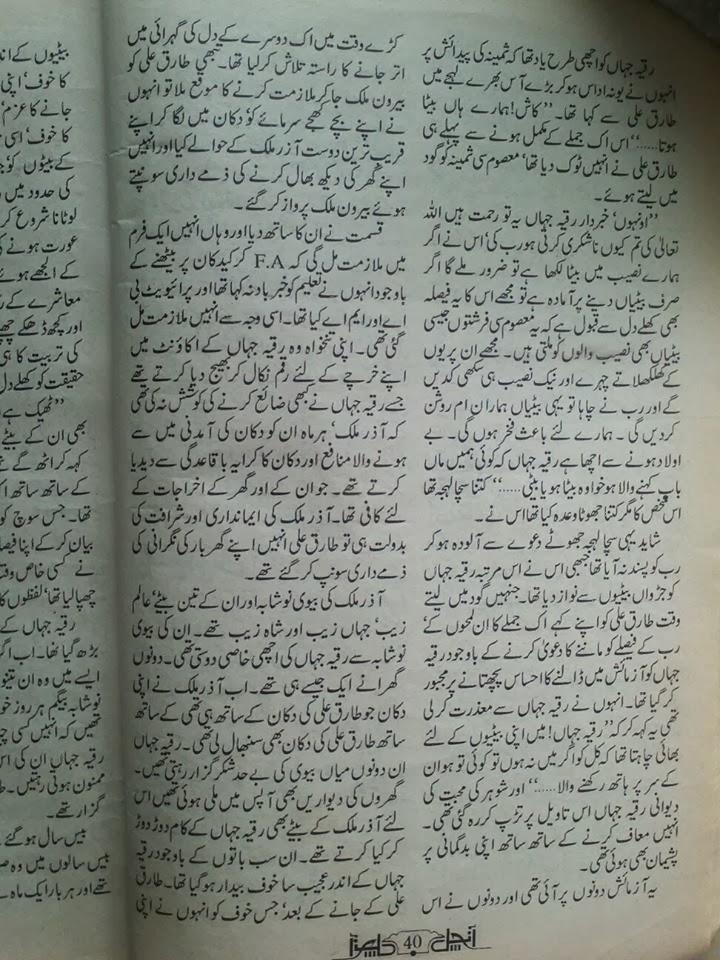 رقیہ جہاں کو اچھی طرح یاد تھا کہ ثمینہ کی پیدائش پر
انہوں نے یونہی اداس ہو کر بڑے آس بھرے لہجے میں
طارق علی سے کہا تھا۔ ’’کاش! ہمارے ہاں بیٹا
ہوتا......‘‘ اس اک جملے کے مکمل ہونے سے پہلے ہی
طارق علی نے انہیں ٹوک دیا تھا‘ معصوم سی ثمینہ کو گود
میں لیتے ہوئے۔
’’اونہوں‘ خبردار رقیہ جہاں یہ تو رحمت ہیں اللہ
تعالیٰ کی تم کیوں ناشکری کرتی ہو رب کی‘ اس نے اگر
ہمارے نصیب میں بیٹا لکھا ہے تو ضرور ملے گا اگر
صرف بیٹیاں دینے پر آمادہ ہے تو مجھے اس کا یہ فیصلہ
بھی کھلے دل سے قبول ہے کہ یہ معصوم سی فرشتوں جیسی
بیٹیاں بھی نصیب والوں کو ملتی ہیں۔ مجھے ان پریوں
کے کھلکھلاتے چہرے اور نیک نصیب ہی سکھی کر دیں
گے اور رب نے چاہا تو یہی بیٹیاں ہمارا نام روشن
کر دیں گی۔ ہمارے لئے باعث فخر ہوں گی۔ بے
اولاد ہونے سے اچھا ہے رقیہ جہاں کہ کوئی ہمیں ماں
باپ کہنے والا ہو خواہ وہ بیٹا ہو یا بیٹی......‘‘ کتنا سچا لہجہ تھا
اس شخص کا مگر کتنا جھوٹا وعدہ کیا تھا اس نے۔
شاید یہی سچا لہجہ جھوٹے دعوے سے آلودہ ہو کر
رب کو پسند نہ آیا تھا جبھی اس نے اس مرتبہ رقیہ جہاں
کو جڑواں بیٹیوں سے نواز دیا تھا۔ جنہیں گود میں لیتے
وقت طارق علی کو اپنے کہے اک جملے کا ان لمحوں کے‘
رب کے فیصلے کو ماننے کا دعویٰ کرنے کے باوجود رقیہ
جہاں کو آزمائش میں ڈالنے کا احساس پچھتانے پر مجبور
کر گیا تھا۔ انہوں نے رقیہ جہاں سے معذرت کر لی
تھی یہ کہہ کر کہ ’’رقیہ جہاں! میں اپنی بیٹیوں کے لئے
بھائی چاہتا تھا کہ کل کو اگر میں نہ ہوں تو کوئی تو ہو ان
کے سر پر ہاتھ رکھنے والا......‘‘ اور شوہر کی محبت کی
دیوانی رقیہ جہاں اس تاویل پر تڑپ کر رہ گئی تھی۔
انہیں معاف کرنے کے ساتھ ساتھ اپنی بدگمانی پر
پشیمان بھی ہوئی تھی۔
یہ آزمائش دونوں پر آئی تھی اور دونوں نے اس
کڑے وقت میں اک دوسرے کے دل کی گہرائی میں
اتر جانے کا راستہ تلاش کر لیا تھا۔ جبھی طارق علی کو
بیرون ملک جا کر ملازمت کرنے کا موقع ملا تو انہوں
نے اپنے بچے کھچے سرمائے کو دکان میں لگا کر اپنے
قریب ترین دوست آذر ملک کے حوالے کیا اور انہیں
اپنے گھر کی دیکھ بھال کرنے کی ذمے داری سونپتے
ہوئے بیرون ملک پرواز کر گئے۔
قسمت نے ان کا ساتھ دیا اور وہاں انہیں ایک فرم
میں ملازمت مل گئی کہ F.A کر کے دکان پر بیٹھنے کے
باوجود انہوں نے تعلیم کو خیرباد نہ کہا تھا اور پرائیویٹ بی
اے اور ایم اے کیا تھا۔ اسی وجہ سے انہیں ملازمت مل
گئی تھی۔ اپنی تنخواہ وہ رقیہ جہاں کے اکاؤنٹ میں
اپنے خرچے کے لئے رقم نکال کر بھیج دیا کرتے تھے
جسے رقیہ جہاں نے بھی ضائع کرنے کی کوشش نہ کی تھی
کہ آذر ملک‘ ہر ماہ ان کو دکان کی آمدنی میں سے
ہونے والا منافع اور دکان کا کرایہ باقاعدگی سے دے دیا
کرتے تھے۔ جو ان کے اور گھر کے اخراجات کے
لئے کافی تھا۔ آذر ملک کی ایمانداری اور شرافت کی
بدولت ہی تو طارق علی انہیں اپنے گھر بار کی نگرانی کی
ذمے داری سونپ کر گئے تھے۔
آذر ملک کی بیوی نوشابہ اور ان کے تین بیٹے‘ عالم
زیب‘ جہاں زیب اور شاہ زیب تھے۔ ان کی بیوی
نوشابہ سے رقیہ جہاں کی اچھی خاصی دوستی تھی۔ دونوں
گھرانے ایک جیسے ہی تھے۔ اب آذر ملک نے اپنی
دکان جو طارق علی کی دکان کے ساتھ ہی تھی کے ساتھ
ساتھ طارق علی کی دکان بھی سنبھال لی تھی۔ رقیہ جہاں
ان دونوں میاں بیوی کی بے حد شکر گزار رہتی تھیں۔
گھروں کی دیواریں بھی آپس میں ملی ہوئی تھیں اس
لئے آذر ملک کے بیٹے بھی رقیہ جہاں کے کام دوڑ دوڑ
کر کیا کرتے تھے۔ ان سب باتوں کے باوجود رقیہ
جہاں کے اندر عجیب سا خوف بیدار ہو گیا تھا۔ طارق
علی کے جانے کے بعد‘ جس خوف کو انہوں نے اپنی
بیٹیوں کے
کا خوف‘ اپنی
جانے کا عزم‘
کا خوف‘ اسی
کے بیٹوں کو‘
کی حدود میں
لوٹانا شروع کر
عورت ہونے کی
کے الجھے ہوئے
معاشرے کے
اور کچھ ڈھکے چھپے
کی تربیت کا ہی
حقیقت کو کھلے دل
’’ٹھیک ہے
بھی ان کے بیٹے
کہہ کر اٹھ گئے
کے ساتھ ساتھ
تھا۔ جس سوچ کو
بیان کر کے اپنا
نے کسی خاص وقت
چھپا لیا تھا‘ لفظوں کا
رقیہ جہاں کے
بڑھ گیا تھا۔ اب
ایسے میں وہ ان
نوشابہ بیگم ہر روز
تھیں کہ انہیں کسی
رقیہ جہاں ان کی اس
ممنون ہوتی رہتیں۔
گزار تھے۔
بیس سال ہو گئے
بیس سالوں میں وہ
تھے اور ہر بار ایک ماہ
آنچل 40